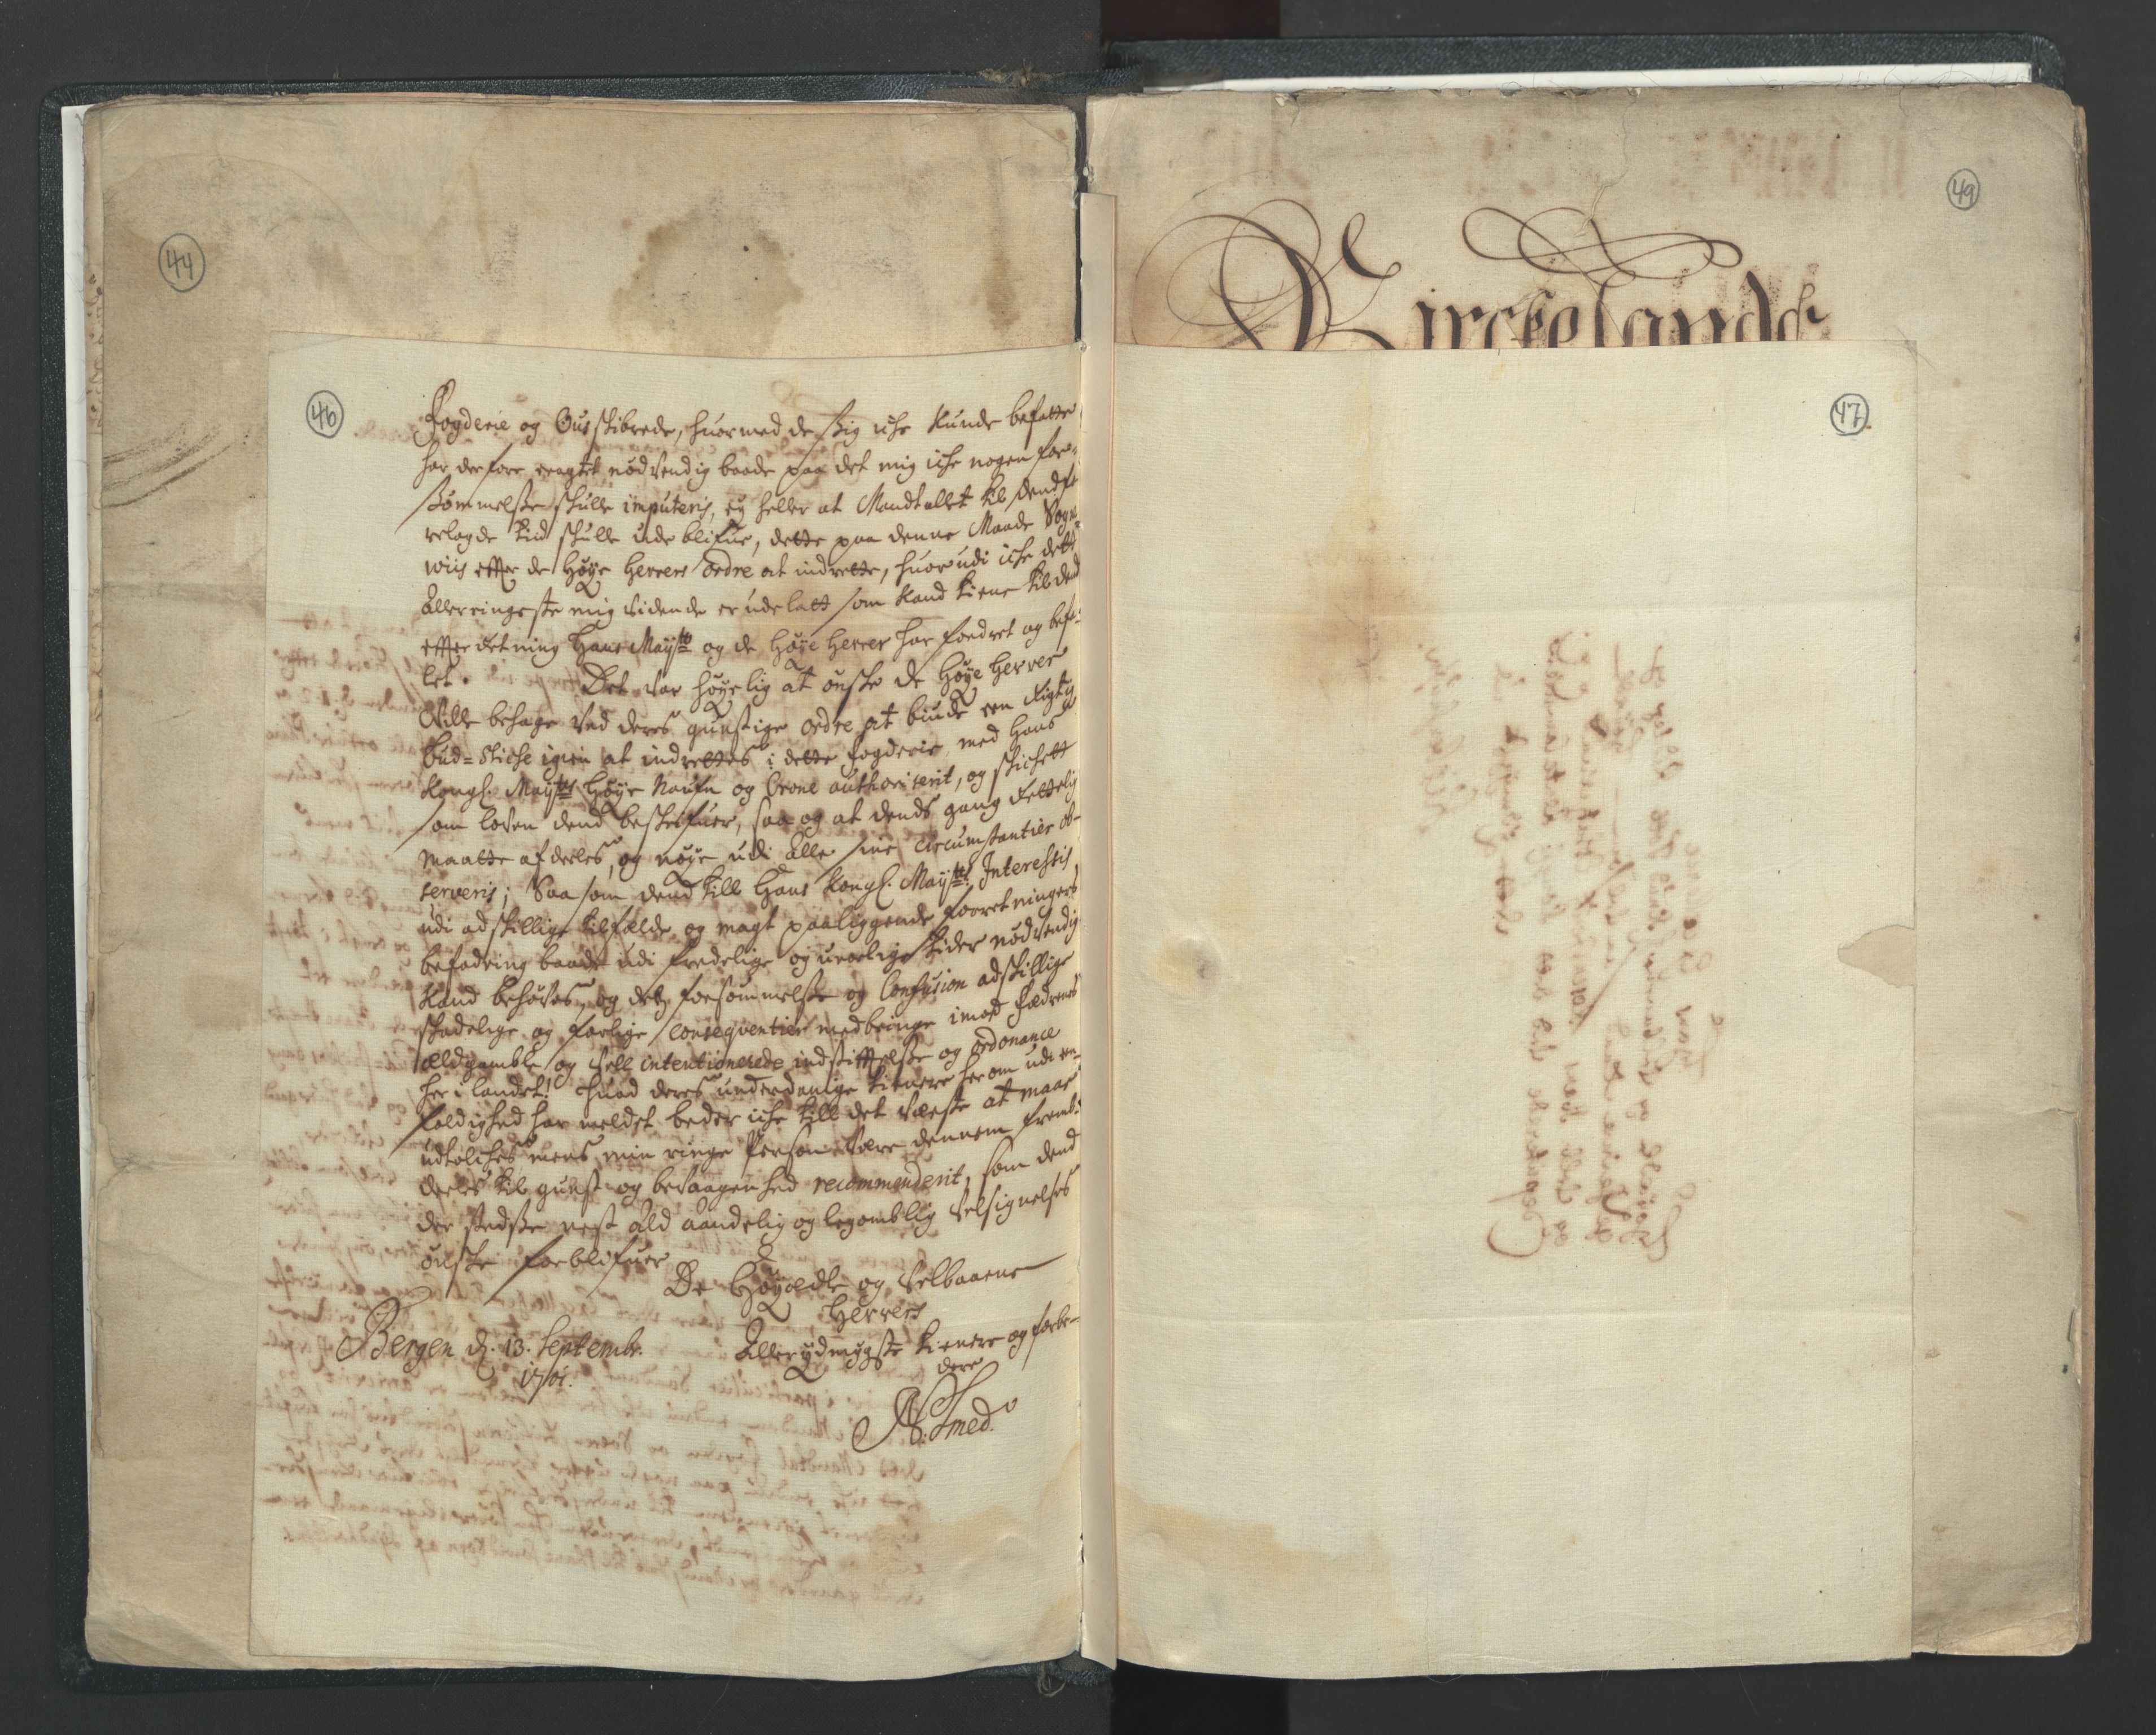 44
46
Fogderie og Huusstibrede, huormed de sig iche kunde befatte
har derfore eragtet nødvendig baade paa det mig iche nogen for-
sømmelse skulle imputeris, ey heller at Mandtallet til
relagde tiid skulle udeblifue, dette paa denne Maade Sogne-
wiis effter de Høye Herrers Ordre at indrette, huorudi iche dett
allerringeste mig vidende er udelatt som kand tiene till dend
effterdetning Hans Mayts og de Høye Herrer har fordret og befa-
let. Det var høyelig at ønske de Høye Herrer
Ville behage ved deres gunstige ordre at biude een Rigtig
bud-Stiche igien at indrettes i dette fogderie med Hans
Kongl. Mayts Høye Nafn og Crone authoriserit, og skichett
som loven dend beskrifuer, saa og at dends gang Rettelig
maatte afdeeles, og nøye udi alle sine Circumstantier ob-
serveris; Saasom dend till Hans Kongl. Mayts Interesse
udi adskillige tilfælde og magt paaliggende forretningers
befodring baade udi fredelige og urolige tider nødvendig
kand behøves, og detz forsømmelse og Confusion adskillige
skadelige og farlige Conseqventier medbringe imod fædrenes
ældgamble og vell intentionerede indstifftelse og ordonance
her i landet! Huad deres underdanige tienere herom udi een-
foldighed har meldet beder iche till det værste at maae
udtolches mens min ringe Person være dennem fremb-
deeles til gunst og bevaagenhed recommenderit, som dend
der stedse nest ald aandelig og legomblig velsignelses
ønske forblifuer
De Høyædle og Velbaarne
Herrers
Bergen d. 13. Septembr.
1701.
Allerydmygste tienere og forbe-
dere
N: Smed.
49
Kirckelands
47